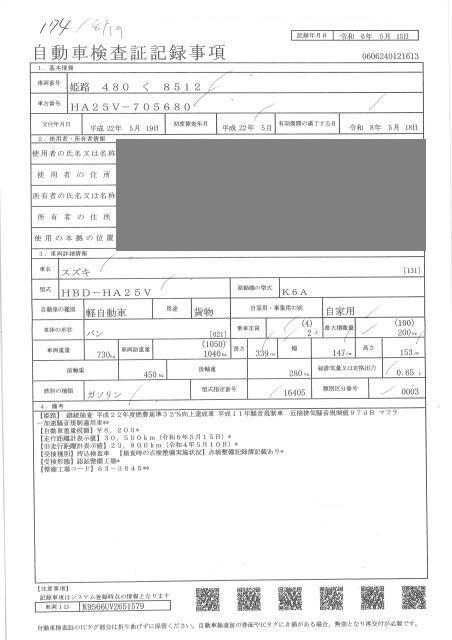 174 / 8/19
記録年月日 令和 6年 5月 15日
自動車検査証記録事項
0606240121613
1. 基本情報
車両番号 姫路 480 く 8512
車台番号 HA25V-705680
交付年月日 平成 22年 5月 19日 初度検査年月 平成 22年 5月 有効期間の満了する日 令和 8年 5月 18日
2. 使用者・所有者情報
使用者の氏名又は名称
使用者の住所
所有者の氏名又は名称
所有者の住所
使用の本拠の位置
3. 車両詳細情報
車名 スズキ [131]
型式 HBD-HA25V 原動機の型式 K6A
自動車の種別 軽自動車 用途 貨物 自家用・事業用の別 自家用
車体の形状 バン [021] 乗車定員 (4) 2人 最大積載量 (100) 200kg
車両重量 730kg 車両総重量 (1050) 1040kg 長さ 339cm 幅 147cm 高さ 153cm
前軸重 450kg 後軸重 280kg 総排気量又は定格出力 0.65L
燃料の種類 ガソリン 型式指定番号 16405 類別区分番号 0003
4. 備考
【姫路】 継続検査 平成22年度燃費基準32%向上達成車 平成11年騒音規制車 近接排気騒音規制値97dB マフラ
ー加速騒音規制適用車**
【自動車重量税額】¥8,200*
【走行距離計表示値】30,500km(令和6年5月15日)*
【旧走行距離計表示値】23,800km(令和4年5月10日)*
【受検種別】持込検査車 【検査時の点検整備実施状況】点検整備記録簿記載あり*
【受検形態】認証整備工場*
【整備工場コード】63-3845**
【注意事項】
記録事項はシステム登録時点の情報となります
車両ID K9566UV2651579
自動車検査証のICタグ部分は折り曲げずに保管ください。自動車検査証の券面やICタグにき損がある場合、無効となり再交付が必要です。